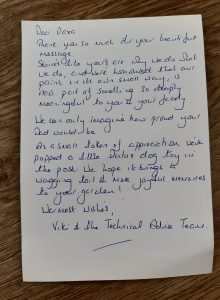 Dear Dara,
Thank you so much for your beautiful
message.
Stories like yours are why we do what
we do, and we're honoured that our
paint, in its own small way, is
now part of something so deeply
meaningful to you & your family.
We can only imagine how proud your
Dad would be.
As a small token of appreciation we've
popped a little Dulux dog toy in
the post. We hope it brings a
wagging tail & more joyful memories
to your garden!
Warmest Wishes,
Viki & the Technical Advice Team.